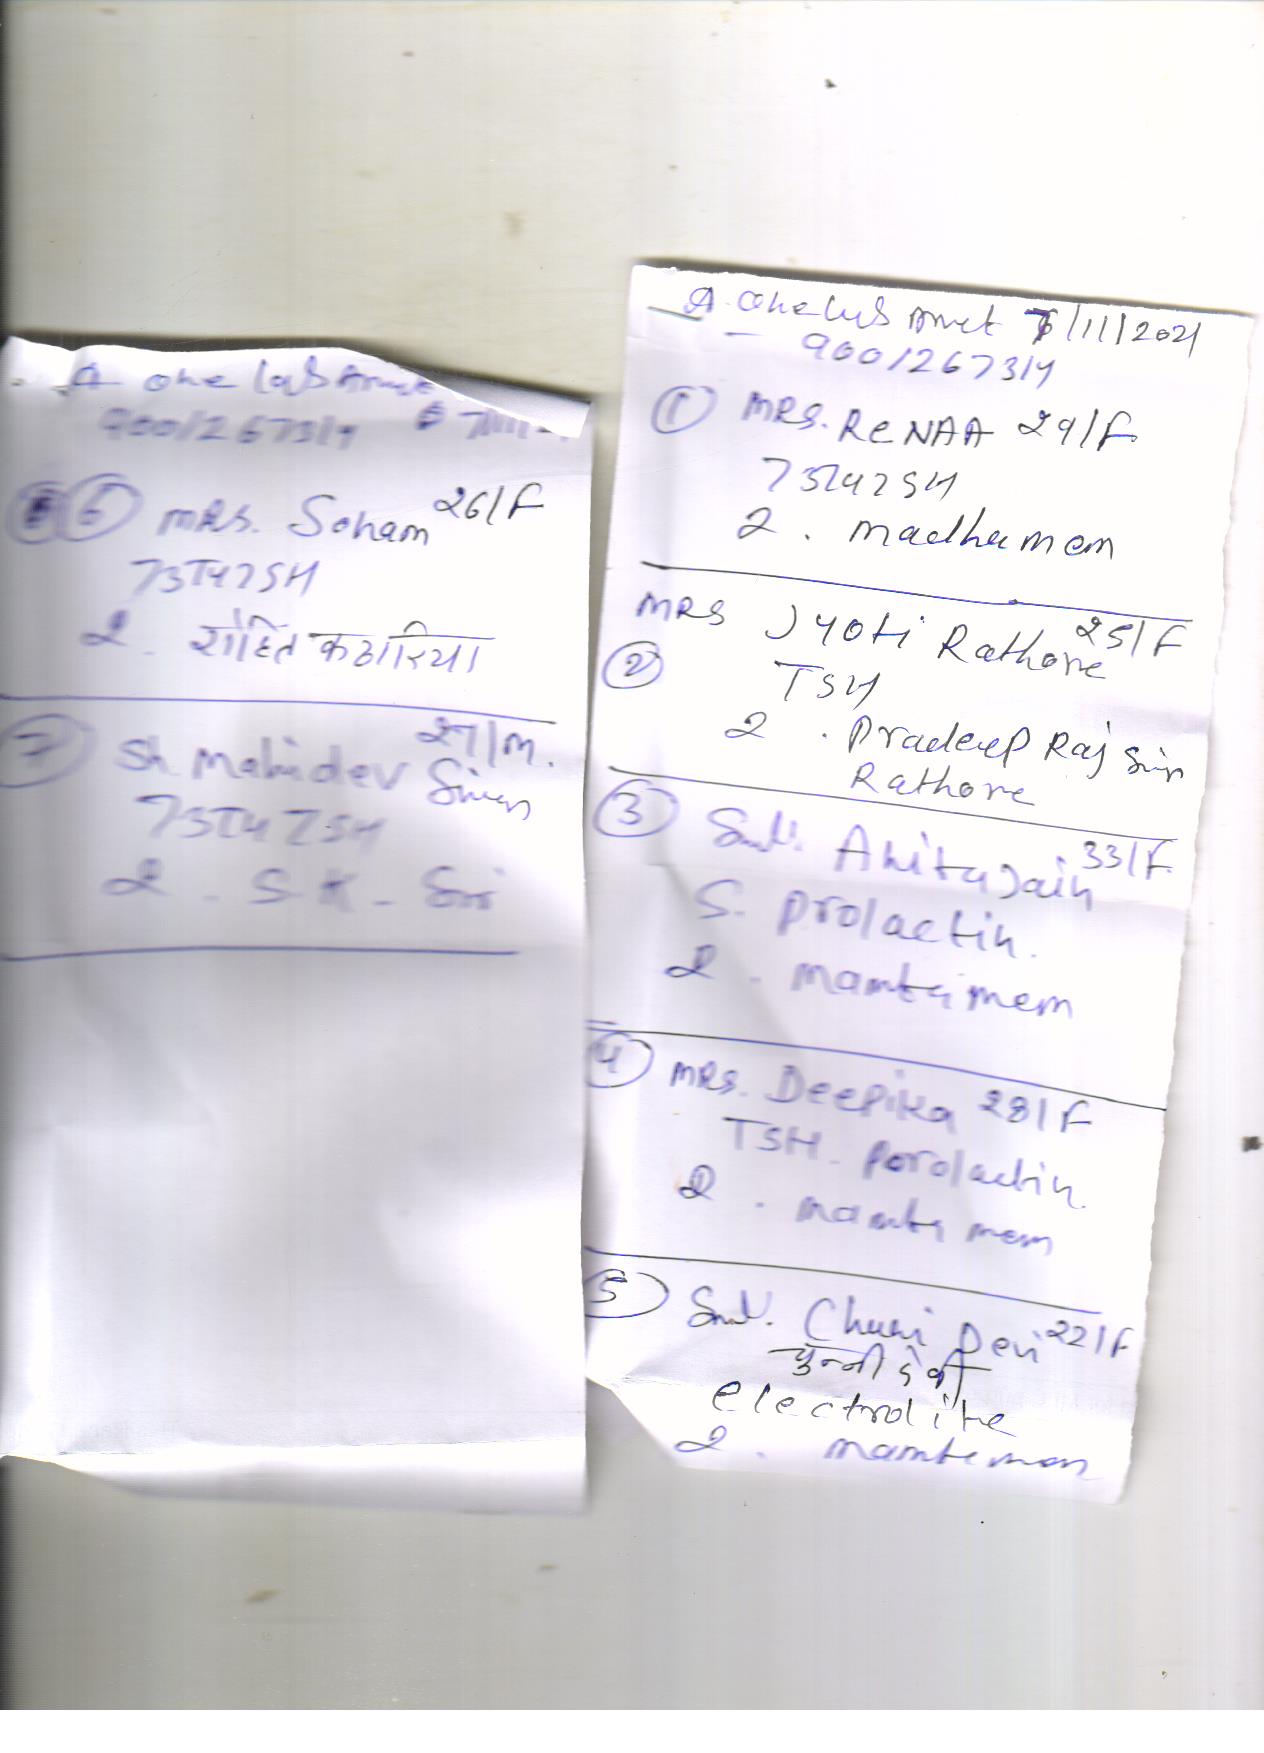 A. One Lab Amet 7/11/2021
9001267314
① MRS. ReNAA 29/F
T3T4TSH
2. madhu mem
MRS Jyoti Rathore 25/F
②
TSH
2. Pradeep Raj
Rathore
③ Smt. Anita Jain 33/F
S. Prolactin.
2. mamta mem
④ MRS. Deepika 28/F
TSH. Porolactin.
2. mamta mem
⑤ Smt. Chuni Devi 22/F
चुन्नी देवी
electrolite
2. mamta mem
A one lab Amet
9001267314 7/11/
⑥ MRS. Soham 26/F
T3T4TSH
2. रोहित कठारिया
7 Sh. Mahidev 27/M.
T3T4TSH
2. S. K. Sir